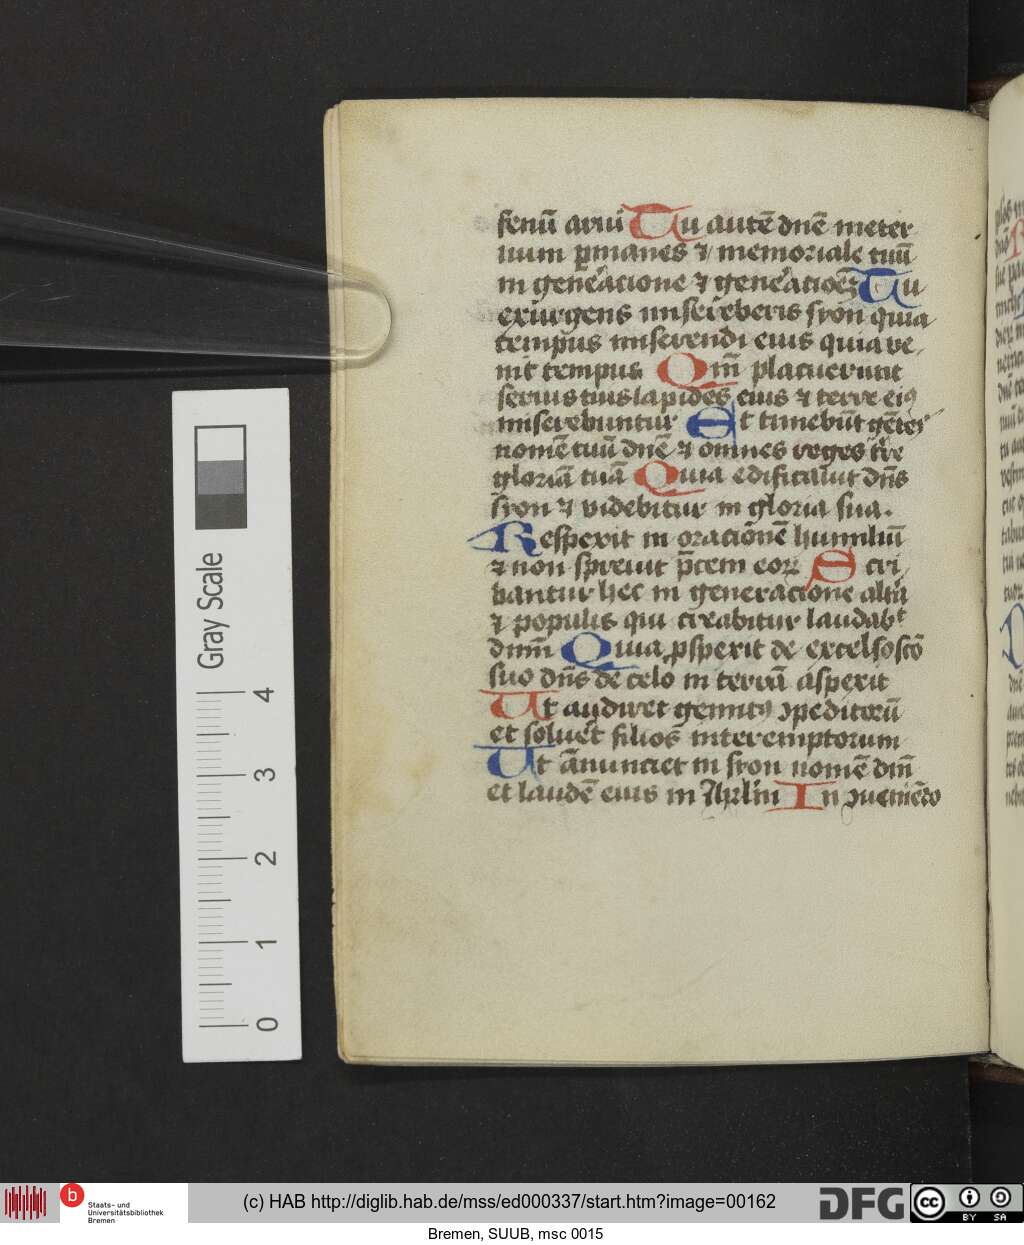 fenū arui Tu autē dn̄e in eter
num ꝑmanes ⁊ memoriale tuū
in gen̄eracione ⁊ gen̄eracōeꝫ Tu
exurgens misereberis syon quia
tempus miserendi eius quia ve
nit tempus Qm̄ placuerunt
seruis tuis lapides eius ⁊ terre eiꝯ
miserebuntur Et timebūt gētes
nomē tuū dn̄e ⁊ omnes reges tr̄e
gloriā tuā Quia edificauit dn̄s
syon ⁊ videbitur in gloria sua.
Respexit in oracionē humiliū
⁊ non spreuit p̄cem eoꝝ Scri
bantur hec in generacione altīa
⁊ populus qui creabitur laudabᵗ
dn̄m Quia ꝓspexit de excelso scō
suo dn̄s de celo in terrā aspexit
Ut audiret gemitꝯ ꝯpeditorū
et soluēt filios interemptorum
Ut ānunciet in syon nomē dn̄i
et laudē eius in Ihrl̄m In ꝯueniēdo
Gray Scale
0 1 2 3 4
b Staats- und
Universitätsbibliothek
Bremen
(c) HAB http://diglib.hab.de/mss/ed000337/start.htm?image=00162
DFG
cc BY SA
Bremen, SUUB, msc 0015